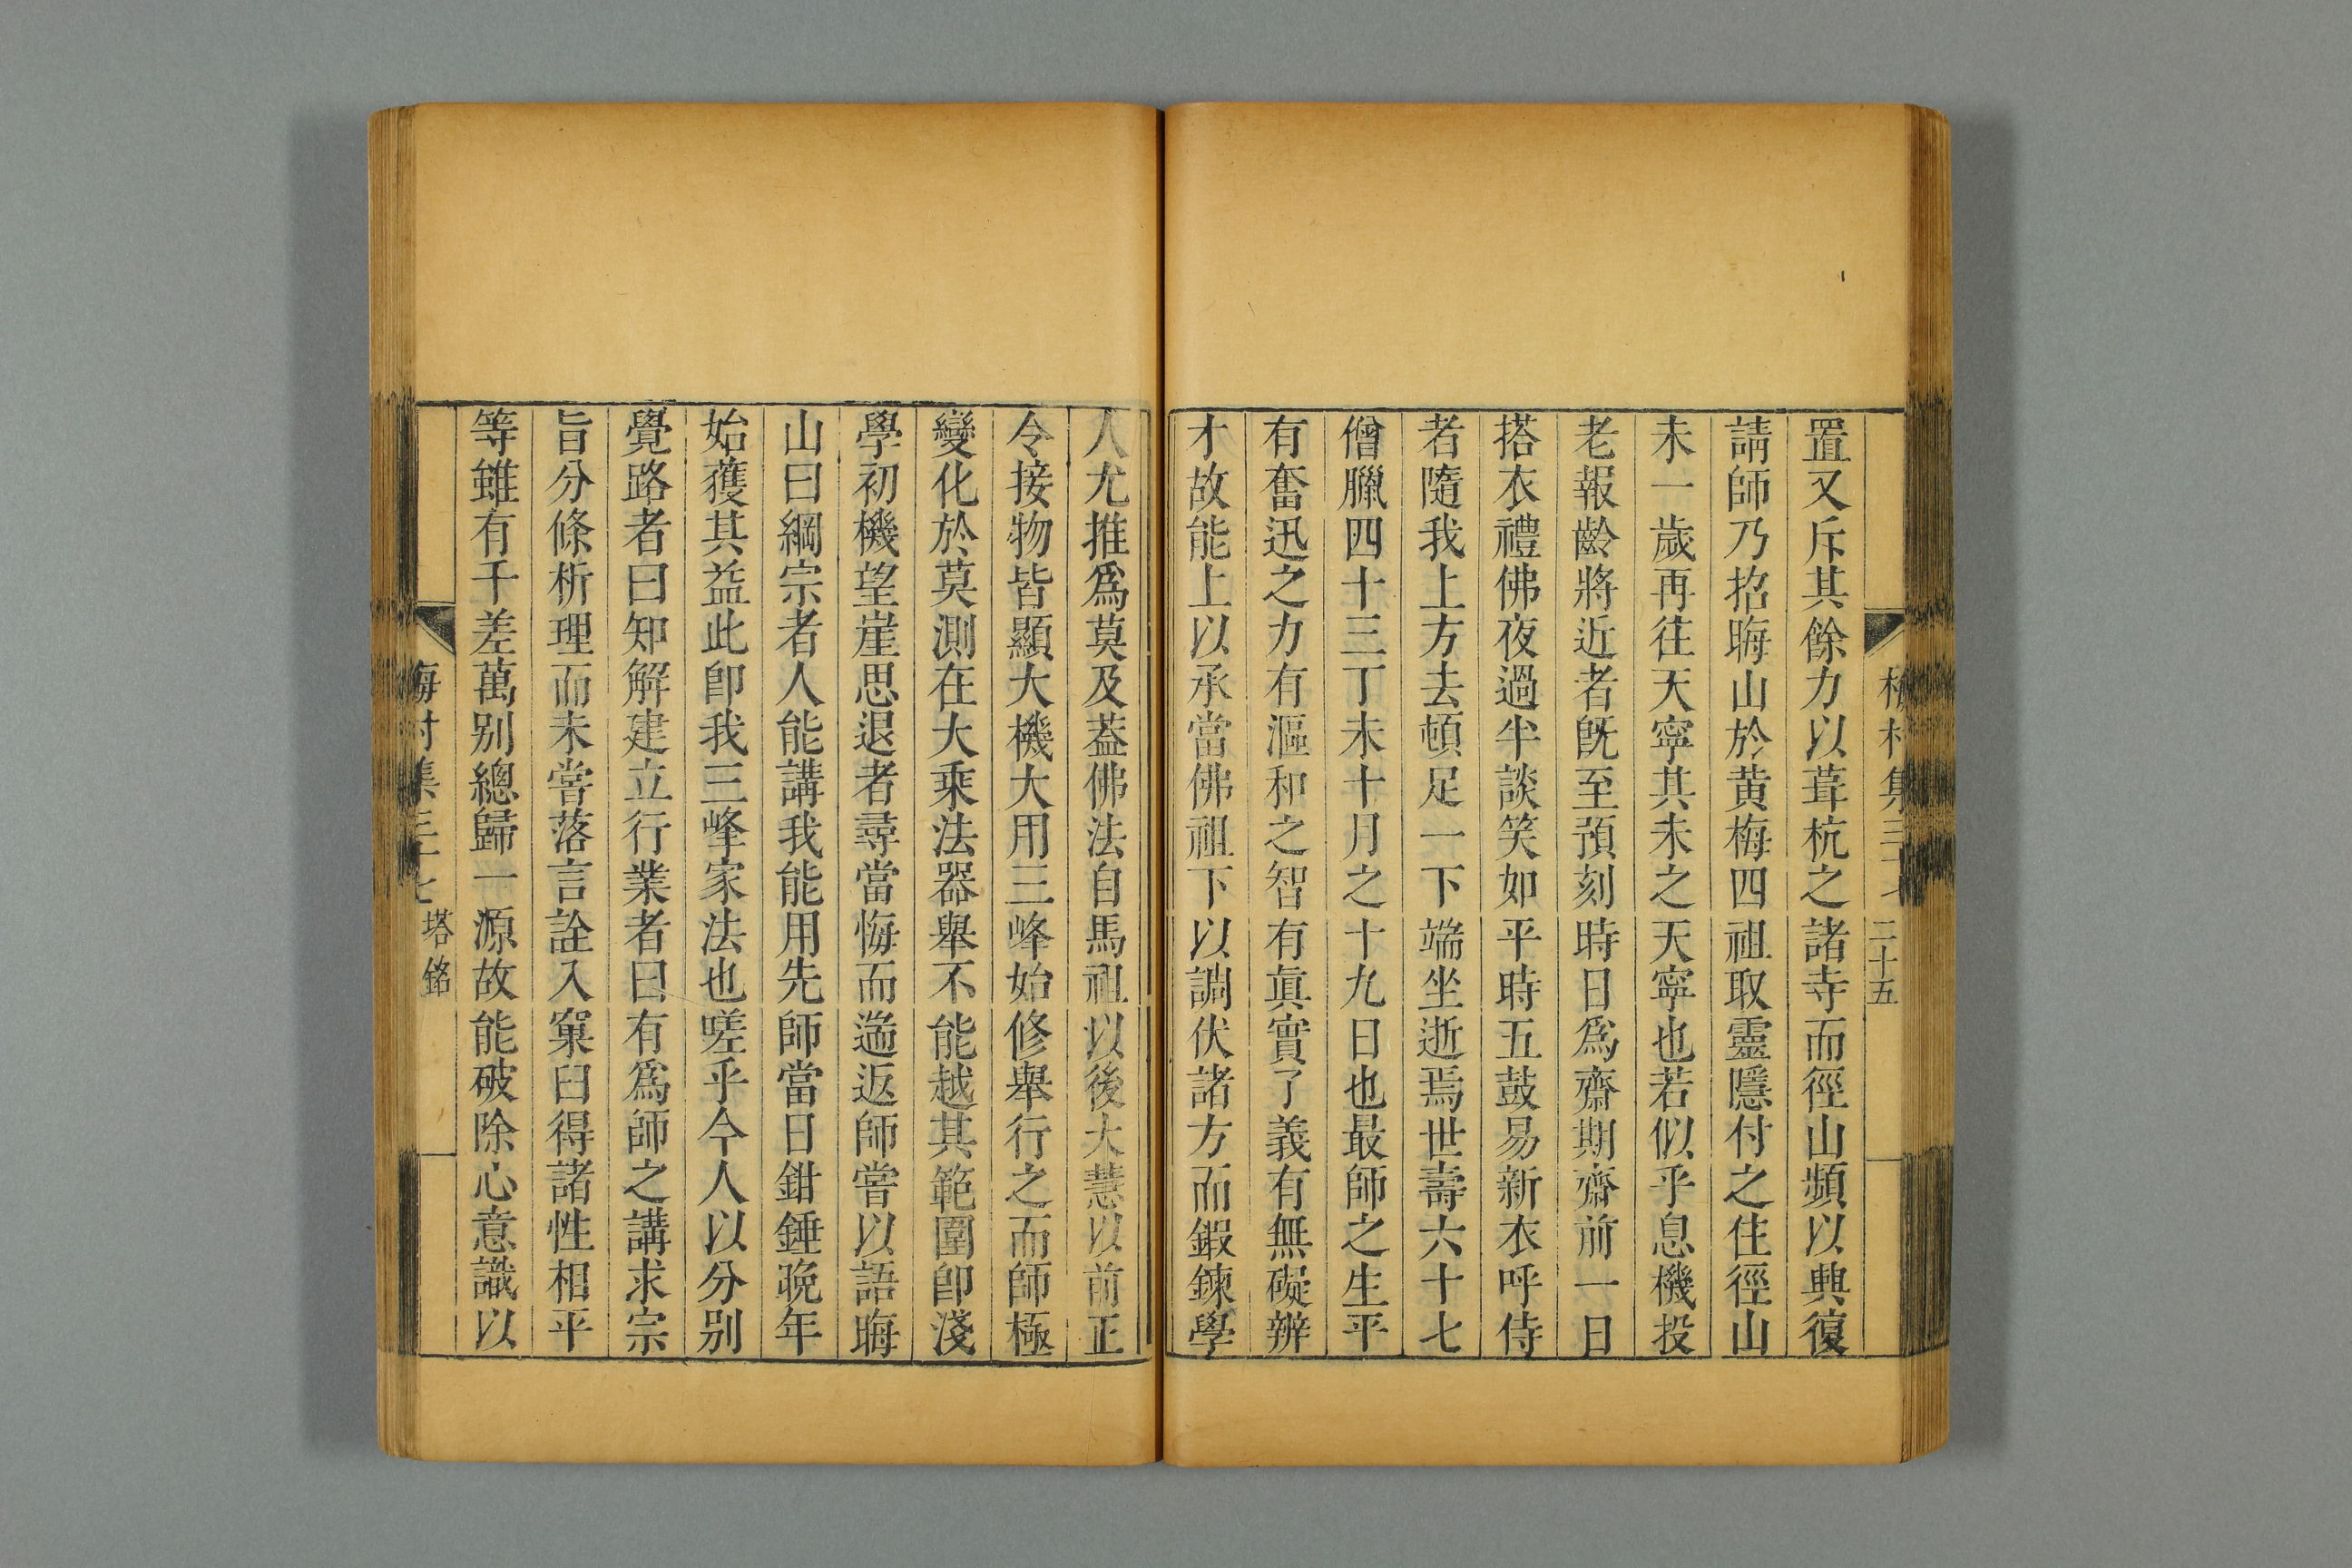 梅村集三十 二十五
置又斥其餘力以葺杭之諸寺而徑山頻以興復
請師乃招晦山於黄梅四祖取靈隱付之住徑山
未一歲再往天寧其未之天寧也若似乎息機投
老報齡將近者旣至預刻時日爲齋期齋前一日
搭衣禮佛夜過半談笑如平時五鼓易新衣呼侍
者隨我上方去頓足一下端坐逝焉世壽六十七
僧臘四十三丁未十月之十九日也最師之生平
有奮迅之力有漚和之智有眞實了義有無礙辨
才故能上以承當佛祖下以調伏諸方而鍜鍊學
人尤推爲莫及葢佛法自馬祖以後大慧以前正
令接物皆顯大機大用三峰始修舉行之而師極
變化於莫測在大乘法器舉不能越其範圍卽淺
學初機望崖思退者尋當悔而遄返師嘗以語晦
山曰綱宗者人能講我能用先師當日鉗錘晚年
始獲其益此卽我三峰家法也嗟乎今人以分别
覺路者曰知解建立行業者曰有爲師之講求宗
旨分條析理而未嘗落言詮入窠臼得諸性相平
等雖有千差萬别總歸一源故能破除心意識以
梅村集三十七 塔銘